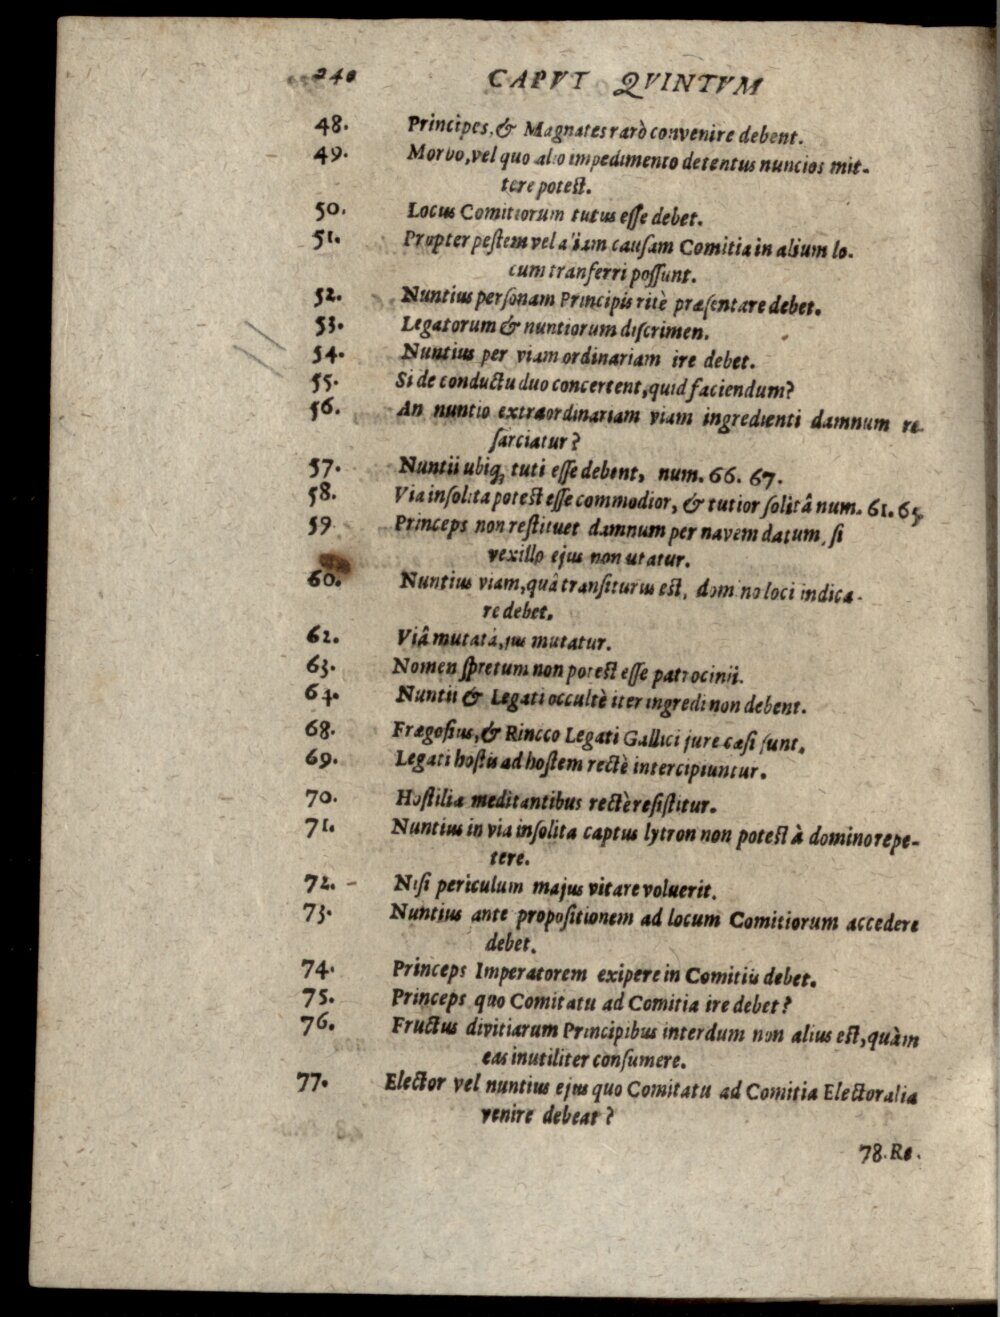 240 CAPVT QVINTVM
48. Principes, & Magnates rarò convenire debent.
49. Morbo, vel quo alio impedimento detentus nuncios mit-
tere potest.
50. Locus Comitiorum tutus esse debet.
51. Propter pestem vel aliam causam Comitia in alium lo-
cum tranferri possunt.
52. Nuntius personam Principis ritè præsentare debet.
53. Legatorum & nuntiorum discrimen.
54. Nuntius per viam ordinariam ire debet.
55. Si de conductu duo concertent, quid faciendum?
56. An nuntio extraordinariam viam ingredienti damnum re-
sarciatur?
57. Nuntii ubiq; tuti esse debent, num. 66. 67.
58. Via insolita potest esse commodior, & tutior solitâ num. 61. 65
59 Princeps non restituet damnum per navem datum, si
vexillo ejus non utatur.
60. Nuntius viam, quâ transiturus est, domino loci indica-
re debet.
62. Viâ mutatâ, jus mutatur.
63. Nomen spretum non potest esse patrocinii.
64. Nuntii & Legati occultè iter ingredi non debent.
68. Frægosius, & Rincco Legati Gallici jure cæsi sunt.
69. Legati hostis ad hostem rectè intercipiuntur.
70. Hostilia meditantibus rectè resistitur.
71. Nuntius in via insolita captus lytron non potest à domino repe-
tere.
72. Nisi periculum majus vitare voluerit.
73. Nuntius ante propositionem ad locum Comitiorum accedere
debet.
74. Princeps Imperatorem exipere in Comitiis debet.
75. Princeps quo Comitatu ad Comitia ire debet?
76. Fructus divitiarum Principibus interdum non alius est, quàm
eas inutiliter consumere.
77. Elector vel nuntius ejus quo Comitatu ad Comitia Electoralia
venire debeat?
78. Re.